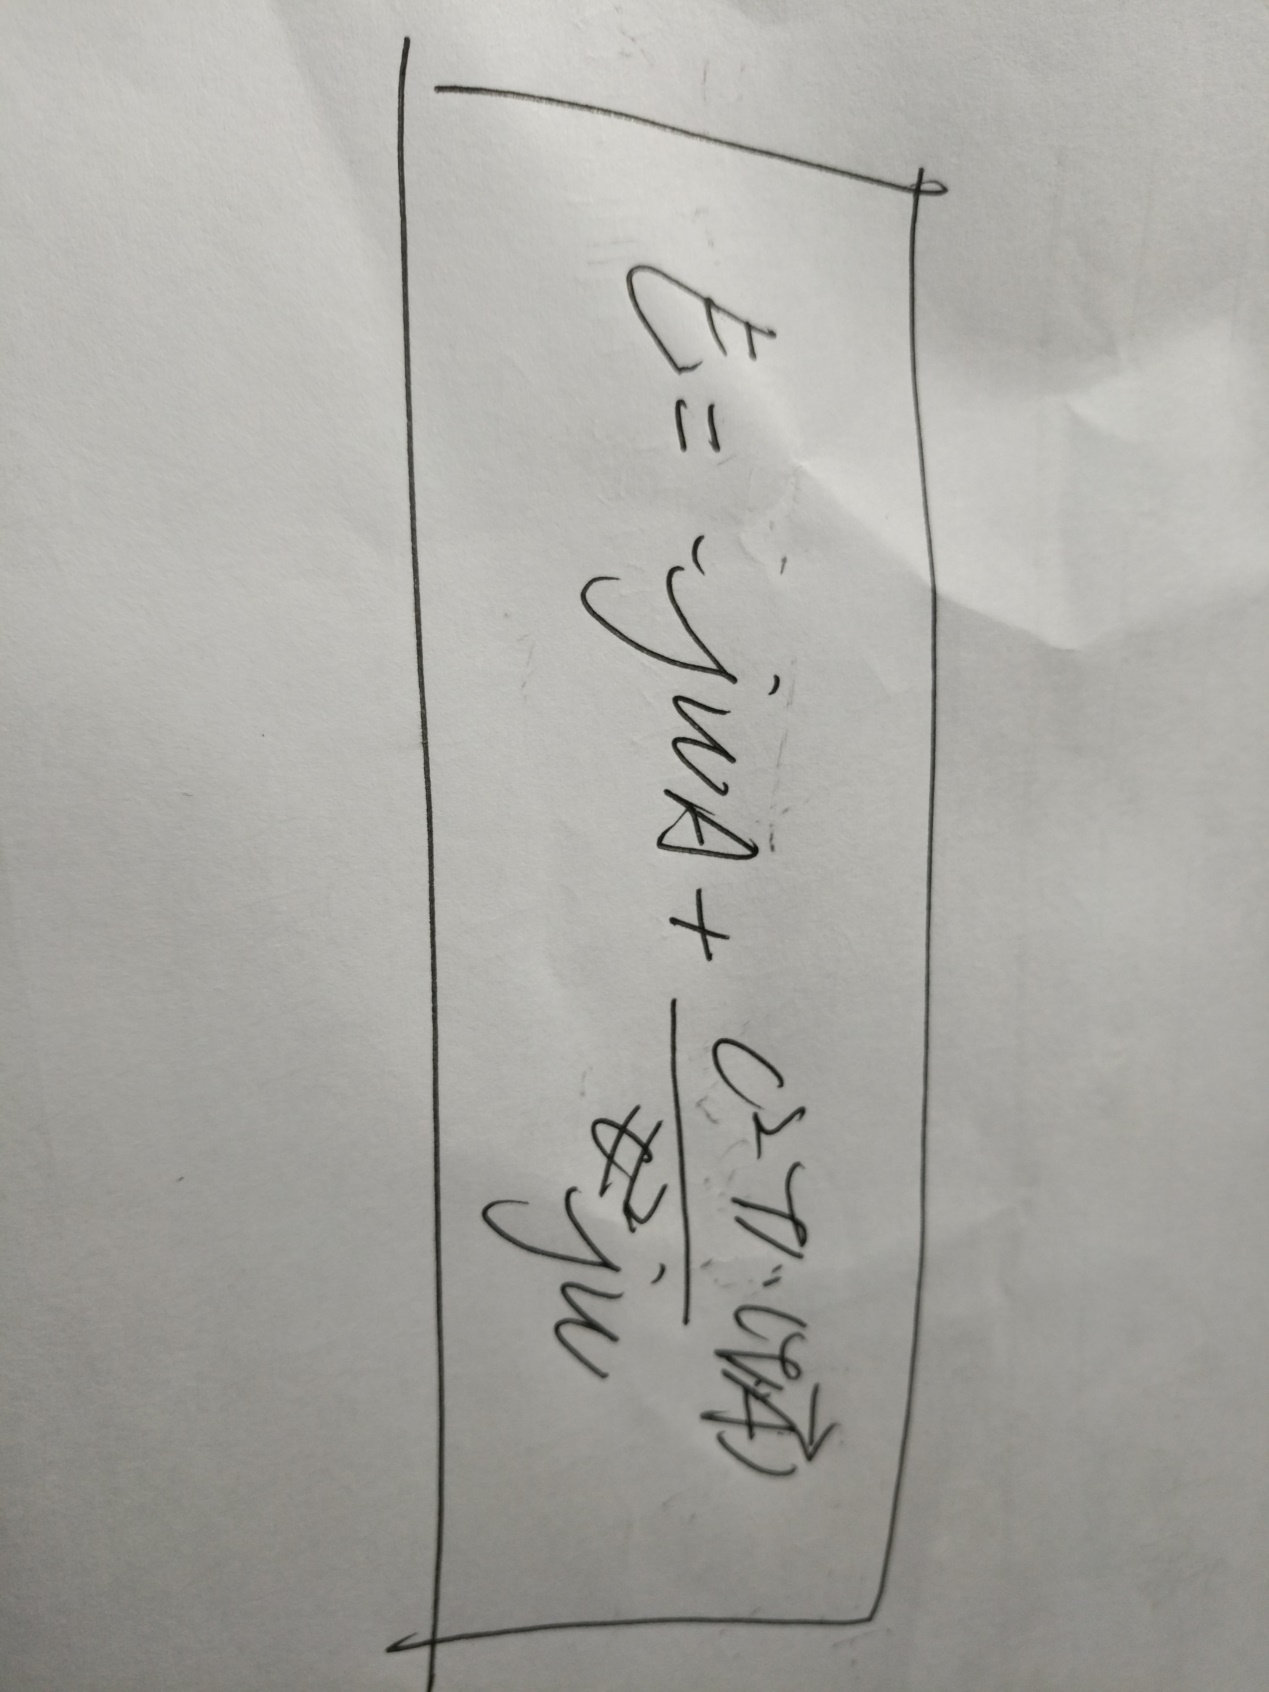 E = -jωA + C² ∇·(∇A⃗) / jω